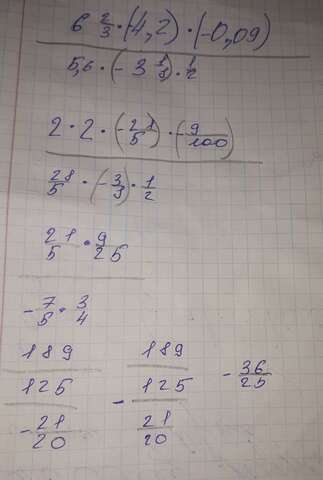 6 2/3 · (-4,2) · (-0,09)
5,6 · (- 3 1/3) · 1/2
2 · 2 · (- 21/5) · - (9/100)
28/5 · (- 3/3) · 1/2
21/5 · 9/25
- 7/5 · 3/4
189 189
125 - 125 - 36/25
- 21/20 21/20